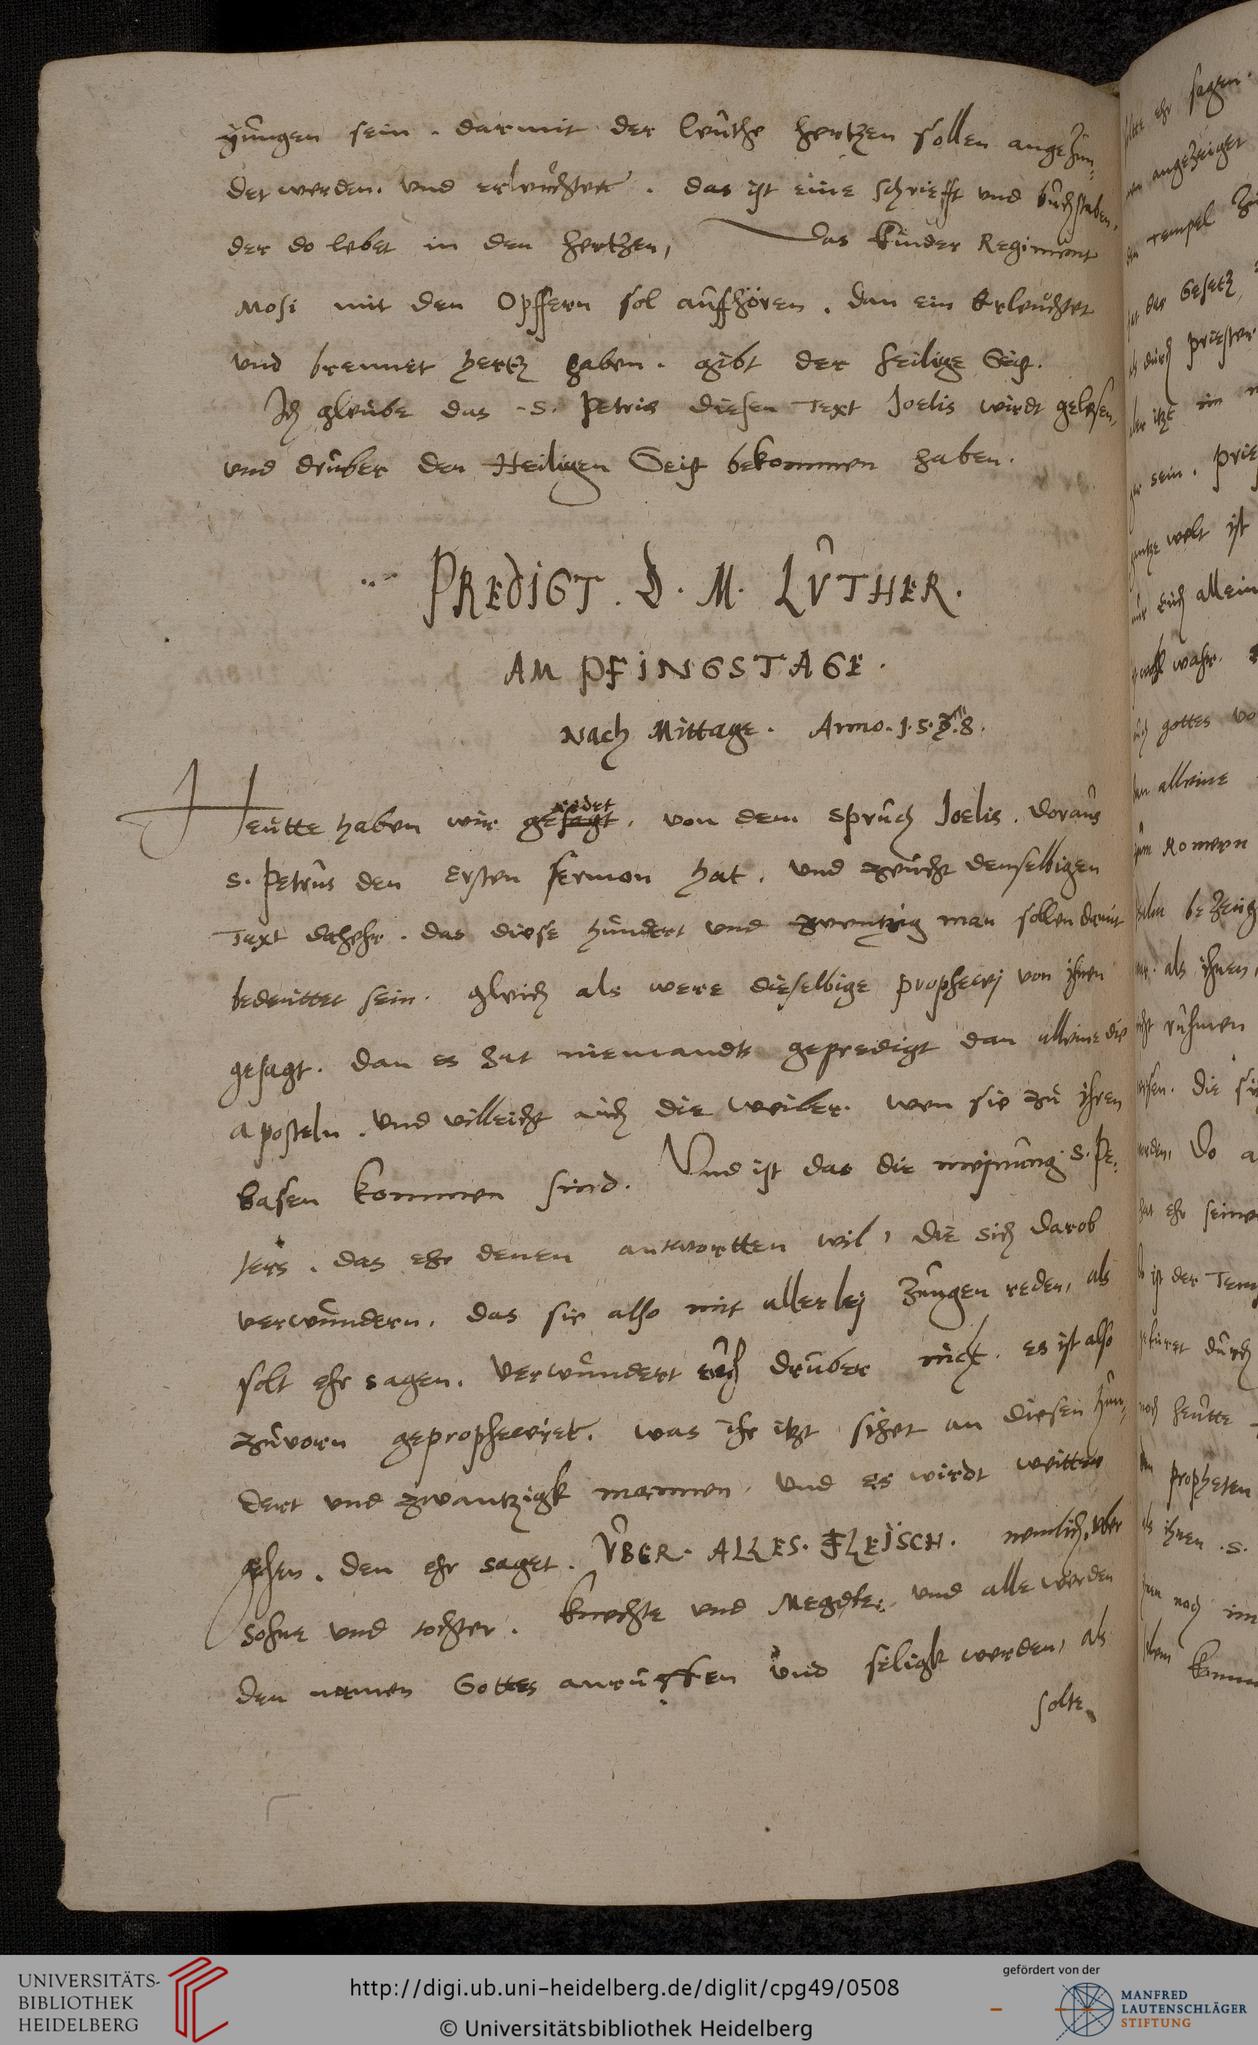 zungen sein. darmit der leuthe hertzen sollen angezun-
det werden. und erleuchtet. das ist eine schriefft und buchstaben,
der do lebet in den hertzen, Das kinder Regiment
Mosi mit den Opffern sol auffhören. dan ein Erleuchtet
und brennet hertz haben. gibt der heilige Geist.
Ich gleube das S. Petrus diesen Text Joelis wirdt gelesen,
und druber den Heiligen Geist bekommen haben.
PREDIGT. D. M. LUTHER.
AM PFINGSTAGE.
Nach Mittage. Anno. 1.5.3.8.
Heutte haben wir geredet. von dem spruch Joelis. doraus
S. Petrus den ersten sermon hat. und zeucht denselbigen
Text dahehr. das diese hundert und zwentzig man sollen damit
bedeuttet sein. gleich als were dieselbige prophecej von ihnen
gesagt. dan es hat niemandts gepredigt dan alleine die
Aposteln. und villeicht auch die weiber. wen sie zu ihren
basen kommen sind. Und ist das die meinung S. Pe-
ters. das ehr denen antwortten wil, die sich darob
verwundern. das sie also mit allerlej zungen reden, als
solt ehr sagen. Verwundert euch druber nicht. es ist also
zuvorn gepropheceiet. was ihr itzt sihet an diesen hun-
dert und zwantzigk mannen, und es wirdt weitter
gehen. den ehr saget. UBER. ALLES. FLEISCH. nemlich, uber
Sohne und tochter. knechte und Megde, und alle werden
den namen Gottes anruffen und seligk werden, als
solte
http://digi.ub.uni-heidelberg.de/diglit/cpg49/0508
© Universitätsbibliothek Heidelberg
UNIVERSITÄTS-
BIBLIOTHEK
HEIDELBERG
gefördert von der
MANFRED
LAUTENSCHLÄGER
STIFTUNG